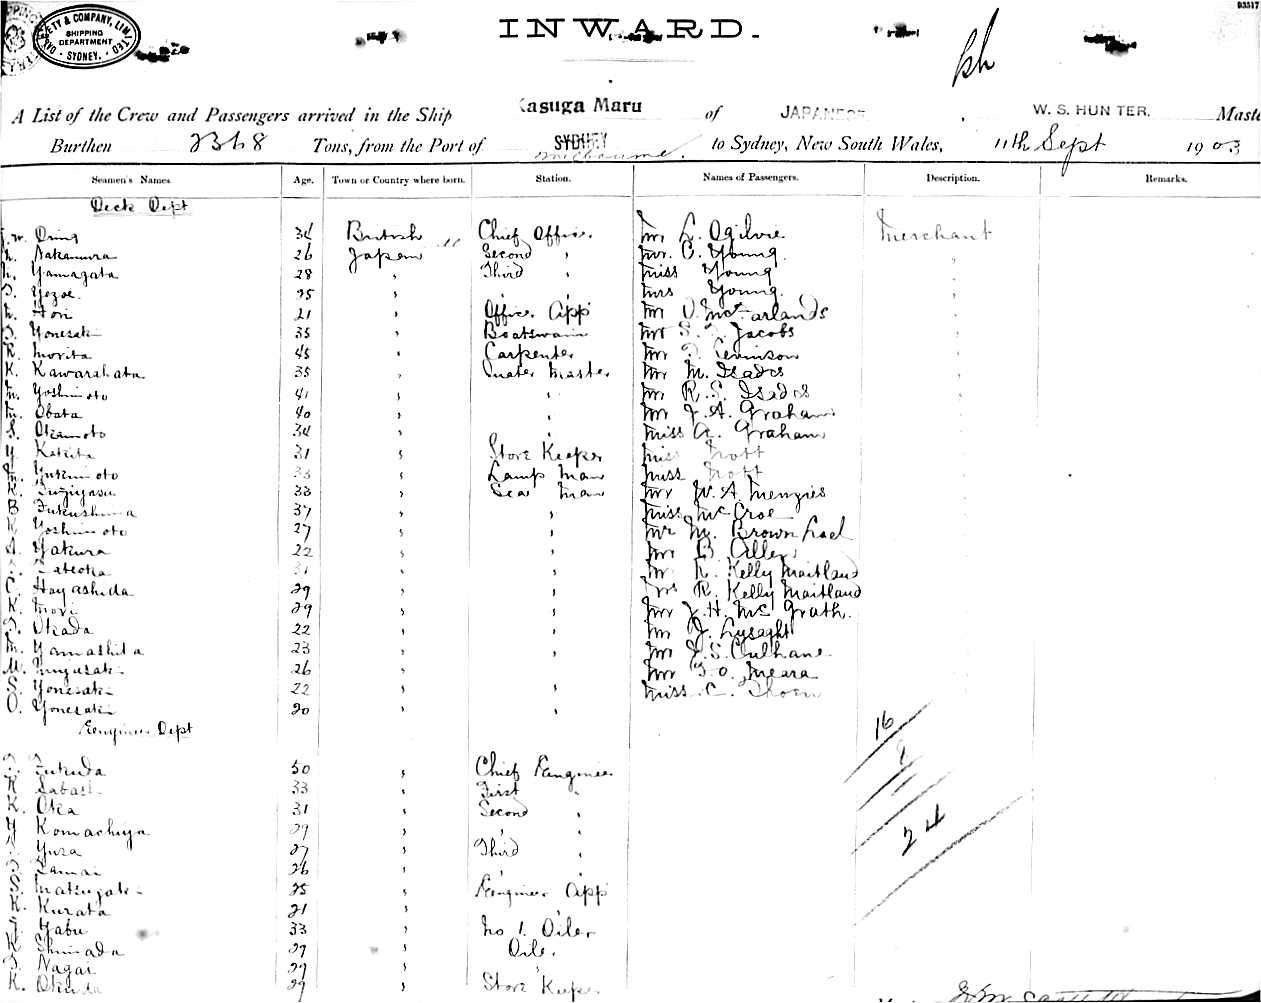 93517
& COMPANY, LIMITED
SHIPPING
DEPARTMENT
SYDNEY.
INWARD.
A List of the Crew and Passengers arrived in the Ship Kasuga Maru of JAPANESE, W. S. HUNTER. Maste
Burthen Tons, from the Port of SYDNEY Melbourne. to Sydney, New South Wales, 11th Sept 1903
Seamen's Names. Age. Town or Country where born. Station. Names of Passengers. Description. Remarks.
Deck Dept
34 British Chief Officer Mr L. Ogilvie Merchant
Nakamura 26 Japan Second " Mr. C. Young
Yamagata 28 " Third " Miss Young "
Yezoe 25 " " Mrs Young "
Hori 21 " Officer App Mr
Yonesaki 35 " Boatswain Mr S. Jacobs
R. Morita 45 " Carpenter Mr
K. Kawarabata 35 " Quater Master Mr M. Isaacs
M. Yoshimoto 41 " " Mr R. S. Isaacs
M. Obata 40 " " Mr J. A. Graham
S. Okamoto 34 " " Miss A. Graham
Y. 31 " Store Keeper Miss Nott
M. Yukimoto 33 " Lamp Man Miss Nott
K. Sugiyasu 33 " Sea Man Mr W. A. Menzies
B Fukushima 37 " " Miss McCroe
K Yoshimoto 27 " " Mr M. Brown
Yakura 22 " " Mr B Allen
31 " " Mr R. Kelly Maitland
C. Hayashida 29 " " Mrs R. Kelly Maitland
K. Mori 29 " " Mr J. H. McGrath.
Okada 22 " " Mr J. Lysaght
M. Yamashita 23 " " Mr J. S. Culhane
M. 26 " " Mr O Meara
S. Yonesaki 22 " " Miss C. Thorn
O. Yonesaki 20 " "
Engineer Dept
16
8
24
Fukuda 50 " Chief Engineer
K 33 " First "
K. Oka 31 " Second "
Y Komachiya 29 " "
Yura 27 " Third "
26 " "
S. 25 " Engineer App
K. Kurata 21 " "
Yabu 33 " No 1. Oiler
K Shimada 29 " Oiler
Nagai 29 " "
K. Okuda 29 " Store Keeper